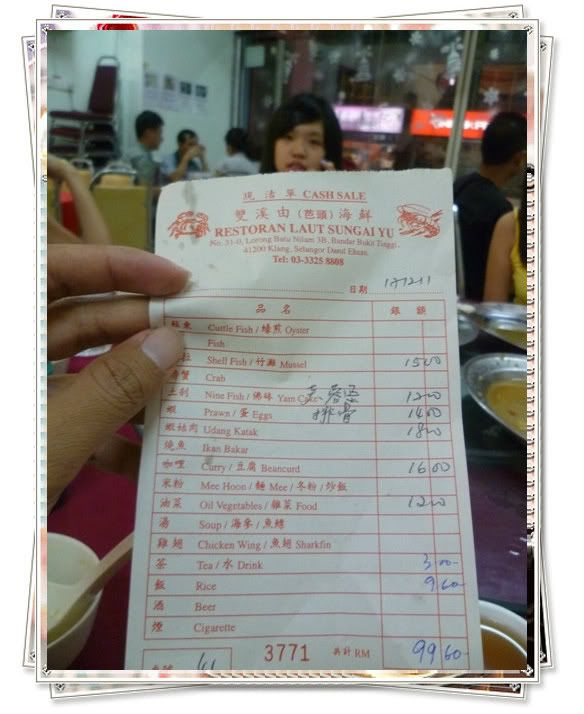 現沽單 CASH SALE
雙溪由 (芭頭) 海鮮
RESTORAN LAUT SUNGAI YU
No. 31-0, Lorong Batu Nilam 3B, Bandar Bukit Tinggi,
41200 Klang, Selangor Darul Ehsan.
Tel: 03-3325 8808
日期
品名 銀額
Cuttle Fish / 蠔煎 Oyster
Fish
Shell Fish / 竹 Mussel 1500
螃蟹 Crab
Nine Fish / 佛砵 Yam Cake 1200
蝦 Prawn / 蛋 Eggs 排骨 1400
蝦姑肉 Udang Katak 1800
燒魚 Ikan Bakar
咖喱 Curry / 豆腐 Beancurd 1600
米粉 Mee Hoon / 麵 Mee / 冬粉 / 炒飯
油菜 Oil Vegetables / 雜菜 Food 1200
湯 Soup / 海參 / 魚鰾
雞翅 Chicken Wing / 魚翅 Sharkfin
茶 Tea / 水 Drink 3.00-
飯 Rice 9.60-
酒 Beer
煙 Cigarette
3771 共計 RM 99.60-